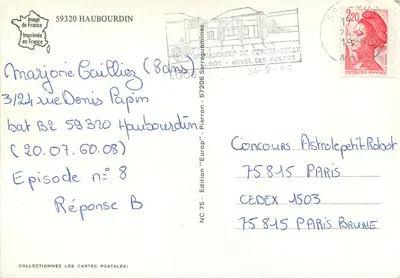 Image
de France
Imprimée
en France
59320 HAUBOURDIN
Marjorie Cailliez (8ans)
3/24 rue Denis Papin
bat B2 59320 Haubourdin
(20.07.60.08)
Episode n° 8
Réponse B
COLLECTIONNEZ LES CARTES POSTALES!
NC 75 - Edition "Europ" - Pierron - 57206 Sarreguemines
LOOS - HOTEL DES POSTES
2,20
Concours Astrolepetit Robot
75815 PARIS
CEDEX 1503
75815 PARIS BRUNE